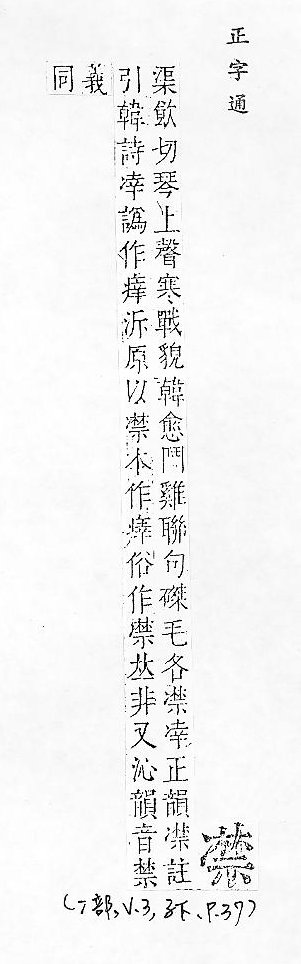 正字通
凚
渠飲切琴上聲寒戰貌韓愈鬥雞聯句磔毛各凚㓑正韻凚註
引韓詩㓑譌作㾕泝原以凚本作㾕俗作凚𠀤非又沁韻音禁
義
同
(冫部、V.3, 子下、P.37)